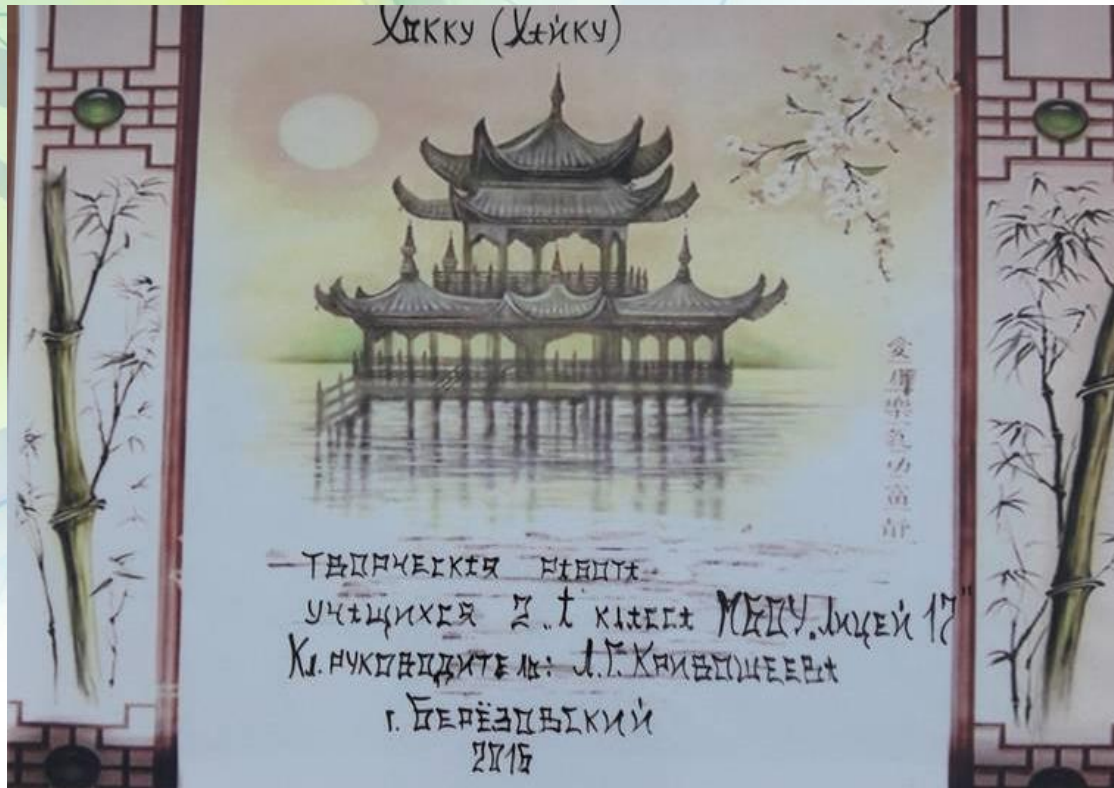 Хокку (Хайку)
愛
樂
氣
功
富
静
творческая работа
учащихся 2 "А класса МБОУ "Лицей 17"
Кл. руководитель: Л.Г. Кривошеева
г. Берёзовский
2016